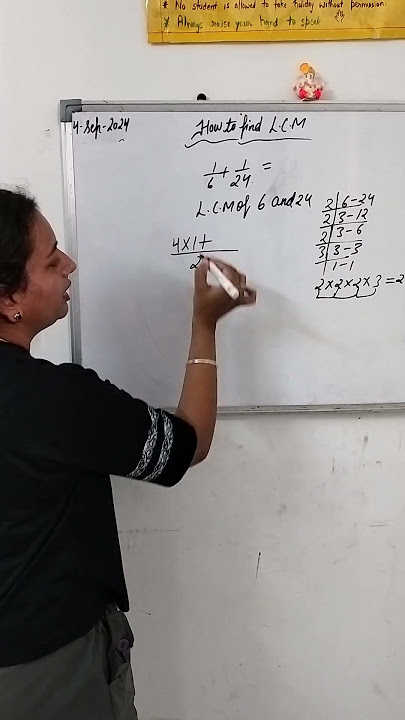 * No student is allowed to take holiday without permission.
* Always raise your hand to speak
4-Sep-2024
How to find L.C.M
1/6 + 1/24 =
L.C.M of 6 and 24
2 | 6 - 24
2 | 3 - 12
2 | 3 - 6
3 | 3 - 3
| 1 - 1
2×2×2×3 = 2
4×1+
2